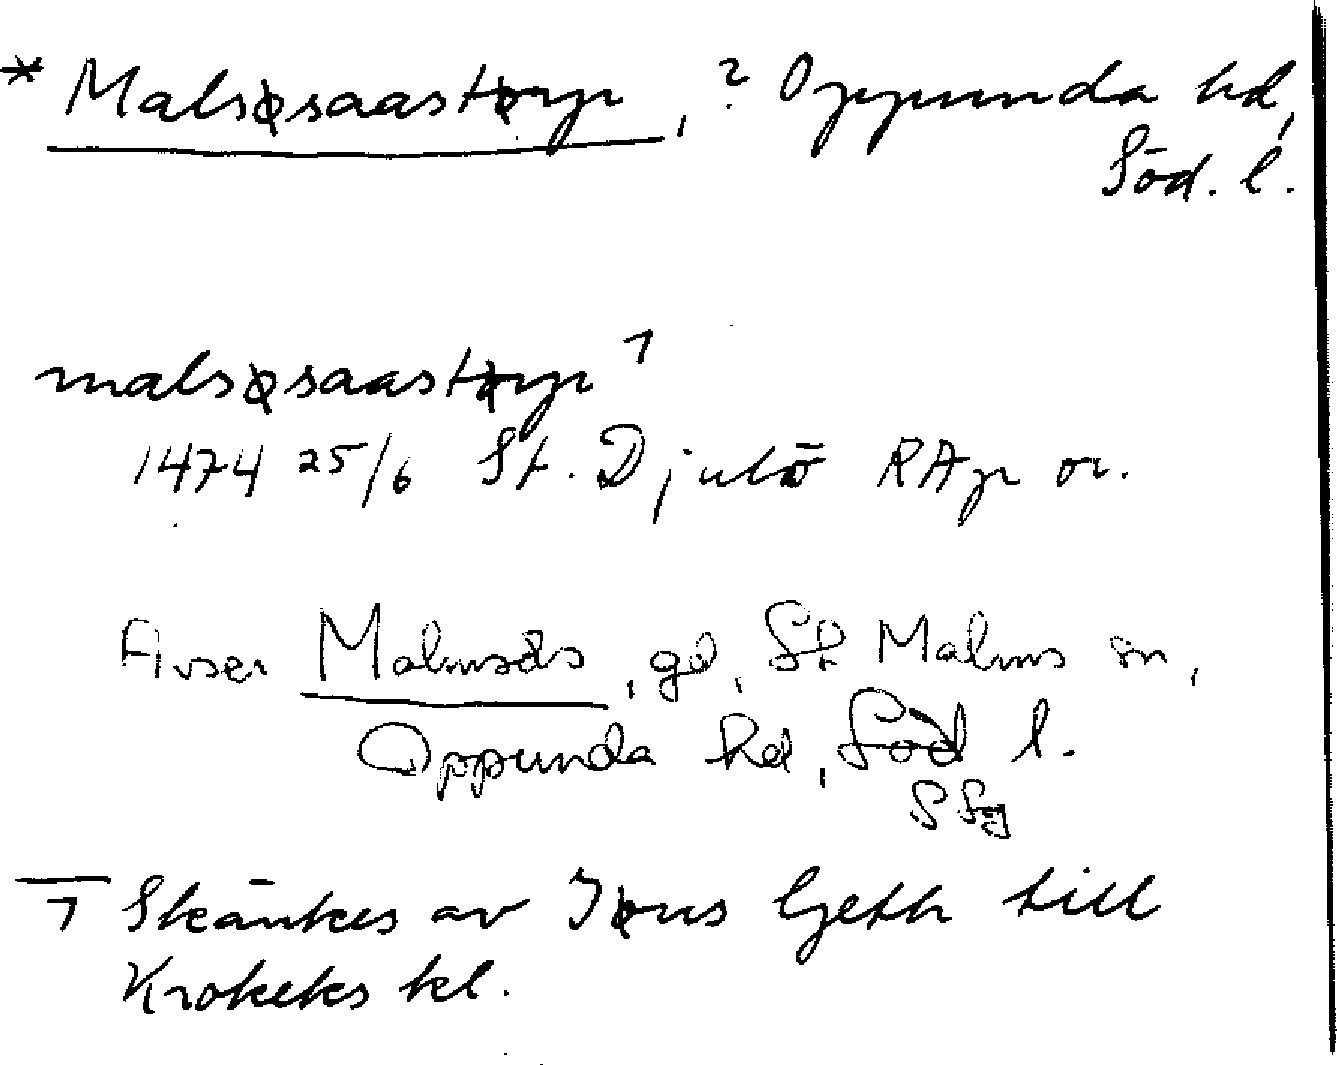 * Malsøsaastørp, ? Oppunda hd,
Söd. l.
malsøsaastørp 1
1474 25/6 St. Djulö RAp or.
Avser Malmsås, gd, St Malms sn,
Oppunda hd, Söd l.
1 Skänkes av Jøns Geth till
Krokeks kl.